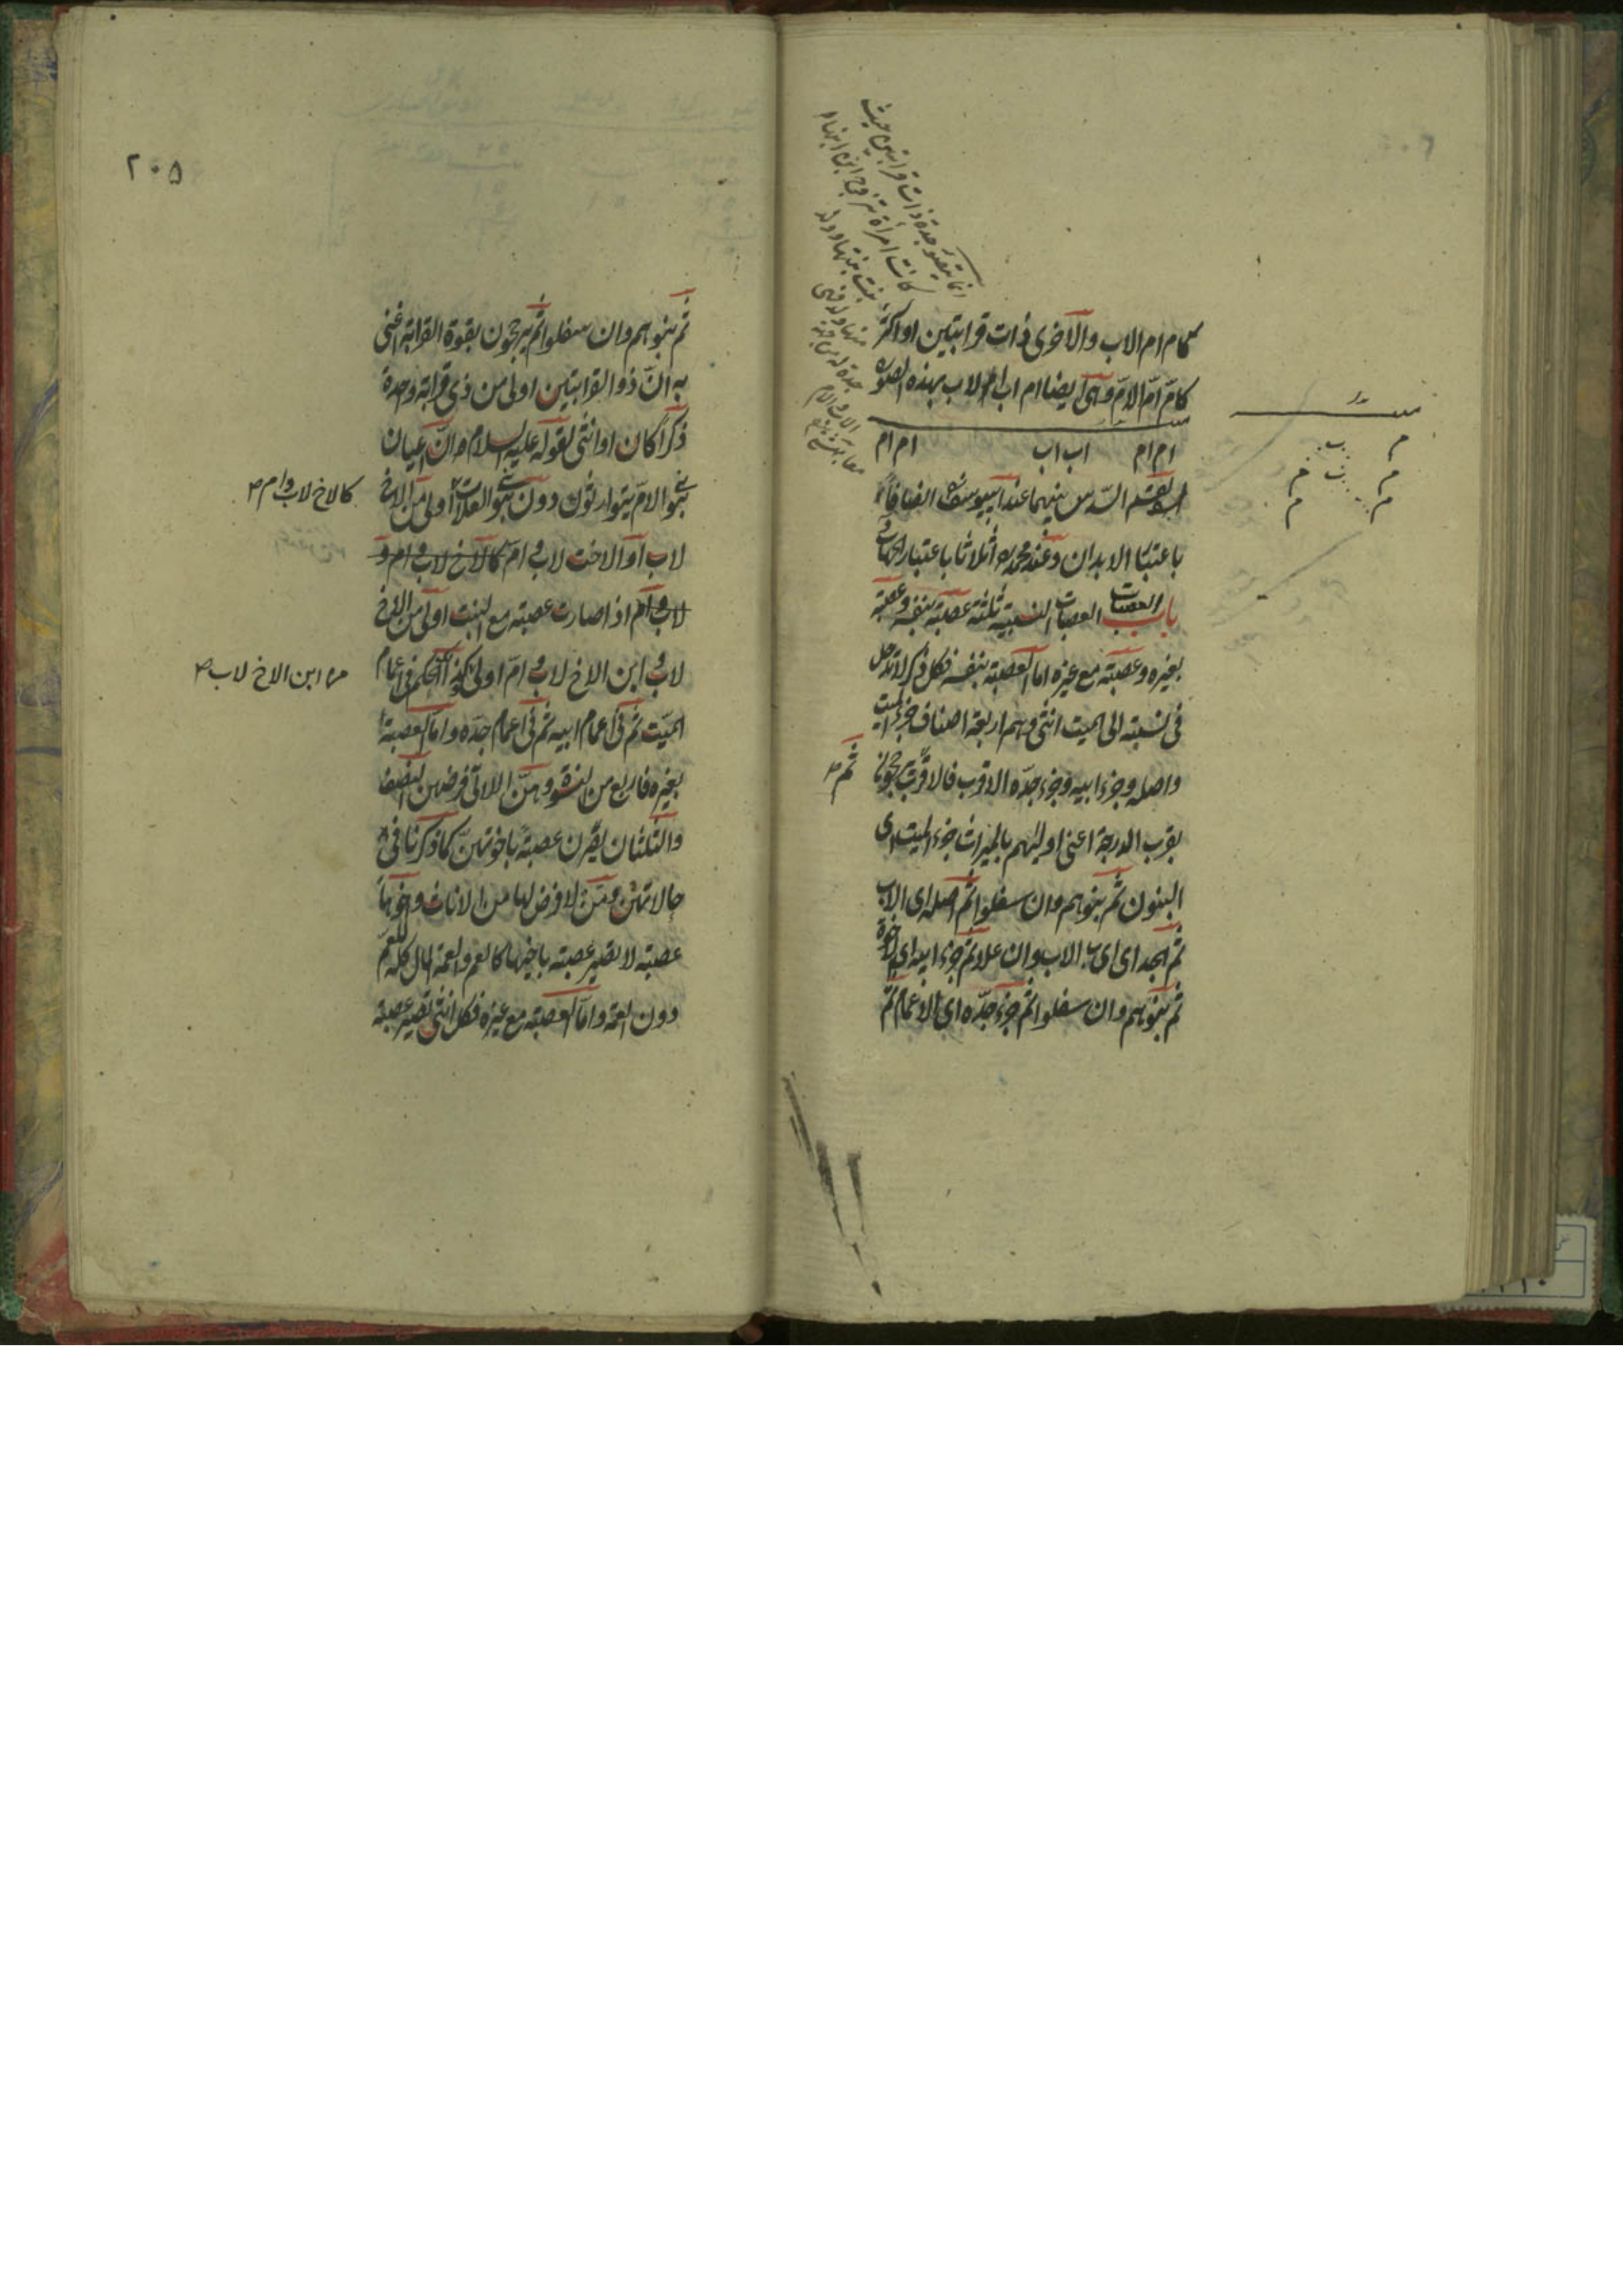 كام ام الاب والاخرى ذات قرابتين او اكثر
كام ام الام وهى ايضا ام اب الاب بهذه الصورة
ام ام اب اب ام ام
يقسم السدس بينهما عند ابيوسف انصافا
باعتبار الابدان وعند محمد اثلاثا باعتبار الجهات
باب العصبات العصبات النسبية ثلثة عصبة بنفسه وعصبة
بغيره وعصبة مع غيره اما العصبة بنفسه فكل ذكر لا تدخل
فى نسبته الى الميت انثى وهم اربعة اصناف جزء الميت
واصله وجزء ابيه وجزء جده الاقرب فالاقرب يرجحون
ثم
بقرب الدرجة اعنى اوليهم بالميراث جزء الميت اى
البنون ثم بنوهم وان سفلوا ثم اصله اى الاب
ثم الجد اى اب الاب وان علا ثم جزء ابيه اى الاخوة
ثم بنوهم وان سفلوا ثم جزء جده اى الاعمام ثم
٢٠٥
ثم بنوهم وان سفلوا ثم يرجحون بقوة القرابة اعنى
به ان ذو القرابتين اولى من ذى قرابة واحدة
ذكرا كان او انثى لقوله عليه السلام ان اعيان
بنى الام يتوارثون دون بنى العلات اولى من الاخ
كالاخ لاب وام
لاب او الاخت لاب وام كالاخ لاب وام و
لاب وام اذا صارت عصبة مع البنت اولى من الاخ
لاب و ابن الاخ لاب وام اولى وكذا الحكم فى اعمام
من ابن الاخ لاب
الميت ثم فى اعمام ابيه ثم فى اعمام جده واما العصبة
بغيره فاربع من النسوة وهن اللاتى فرضهن النصف
والثلثان يصرن عصبة باخوتهن كما ذكرنا فى
حالاتهن ومن لا فرض لها من الاناث واخوها
عصبة لا تصير عصبة باخيها كالعم والعمة المال كله للعم
دون العمة واما العصبة مع غيره فكل انثى تصير عصبة